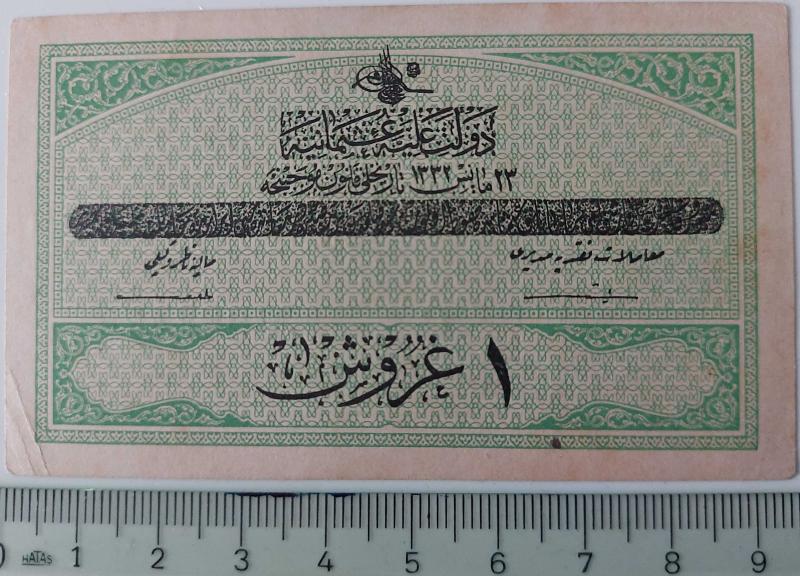 دولت علیه عثمانیه
٢٣ مایس ١٣٣٢ تاریخلی قانون موجبنجه
معاملات نقدیه مدیری
مالیه ناظر وکیلی
١ غروش
0 1 2 3 4 5 6 7 8 9
HATAS